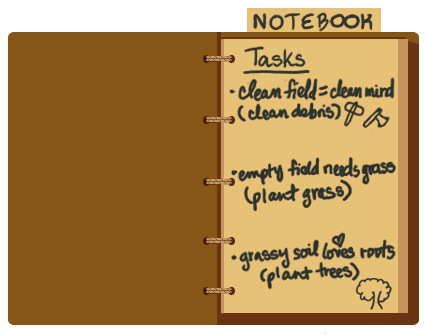 NOTEBOOK
Tasks
• clean field = clean mind
(clean debris)
• empty field needs grass
(plant grass)
• grassy soil loves roots
(plant trees)